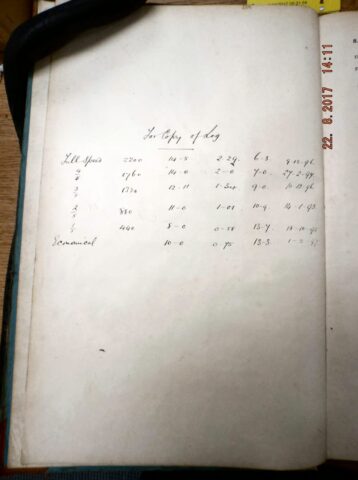 For Copy of Log
Full Speed 2200 14-5 2-29 6-8 9-12-96
4/5 1760 14-0 2-0 7-0 27-2-97
3/5 1320 12-11 9-0 10-12-96
2/5 880 11-0 1-01 10-9
1/5 440 8-0 0-58 13-7
Economical 10-0 0-75 13-3
22. 8. 2017 14:11